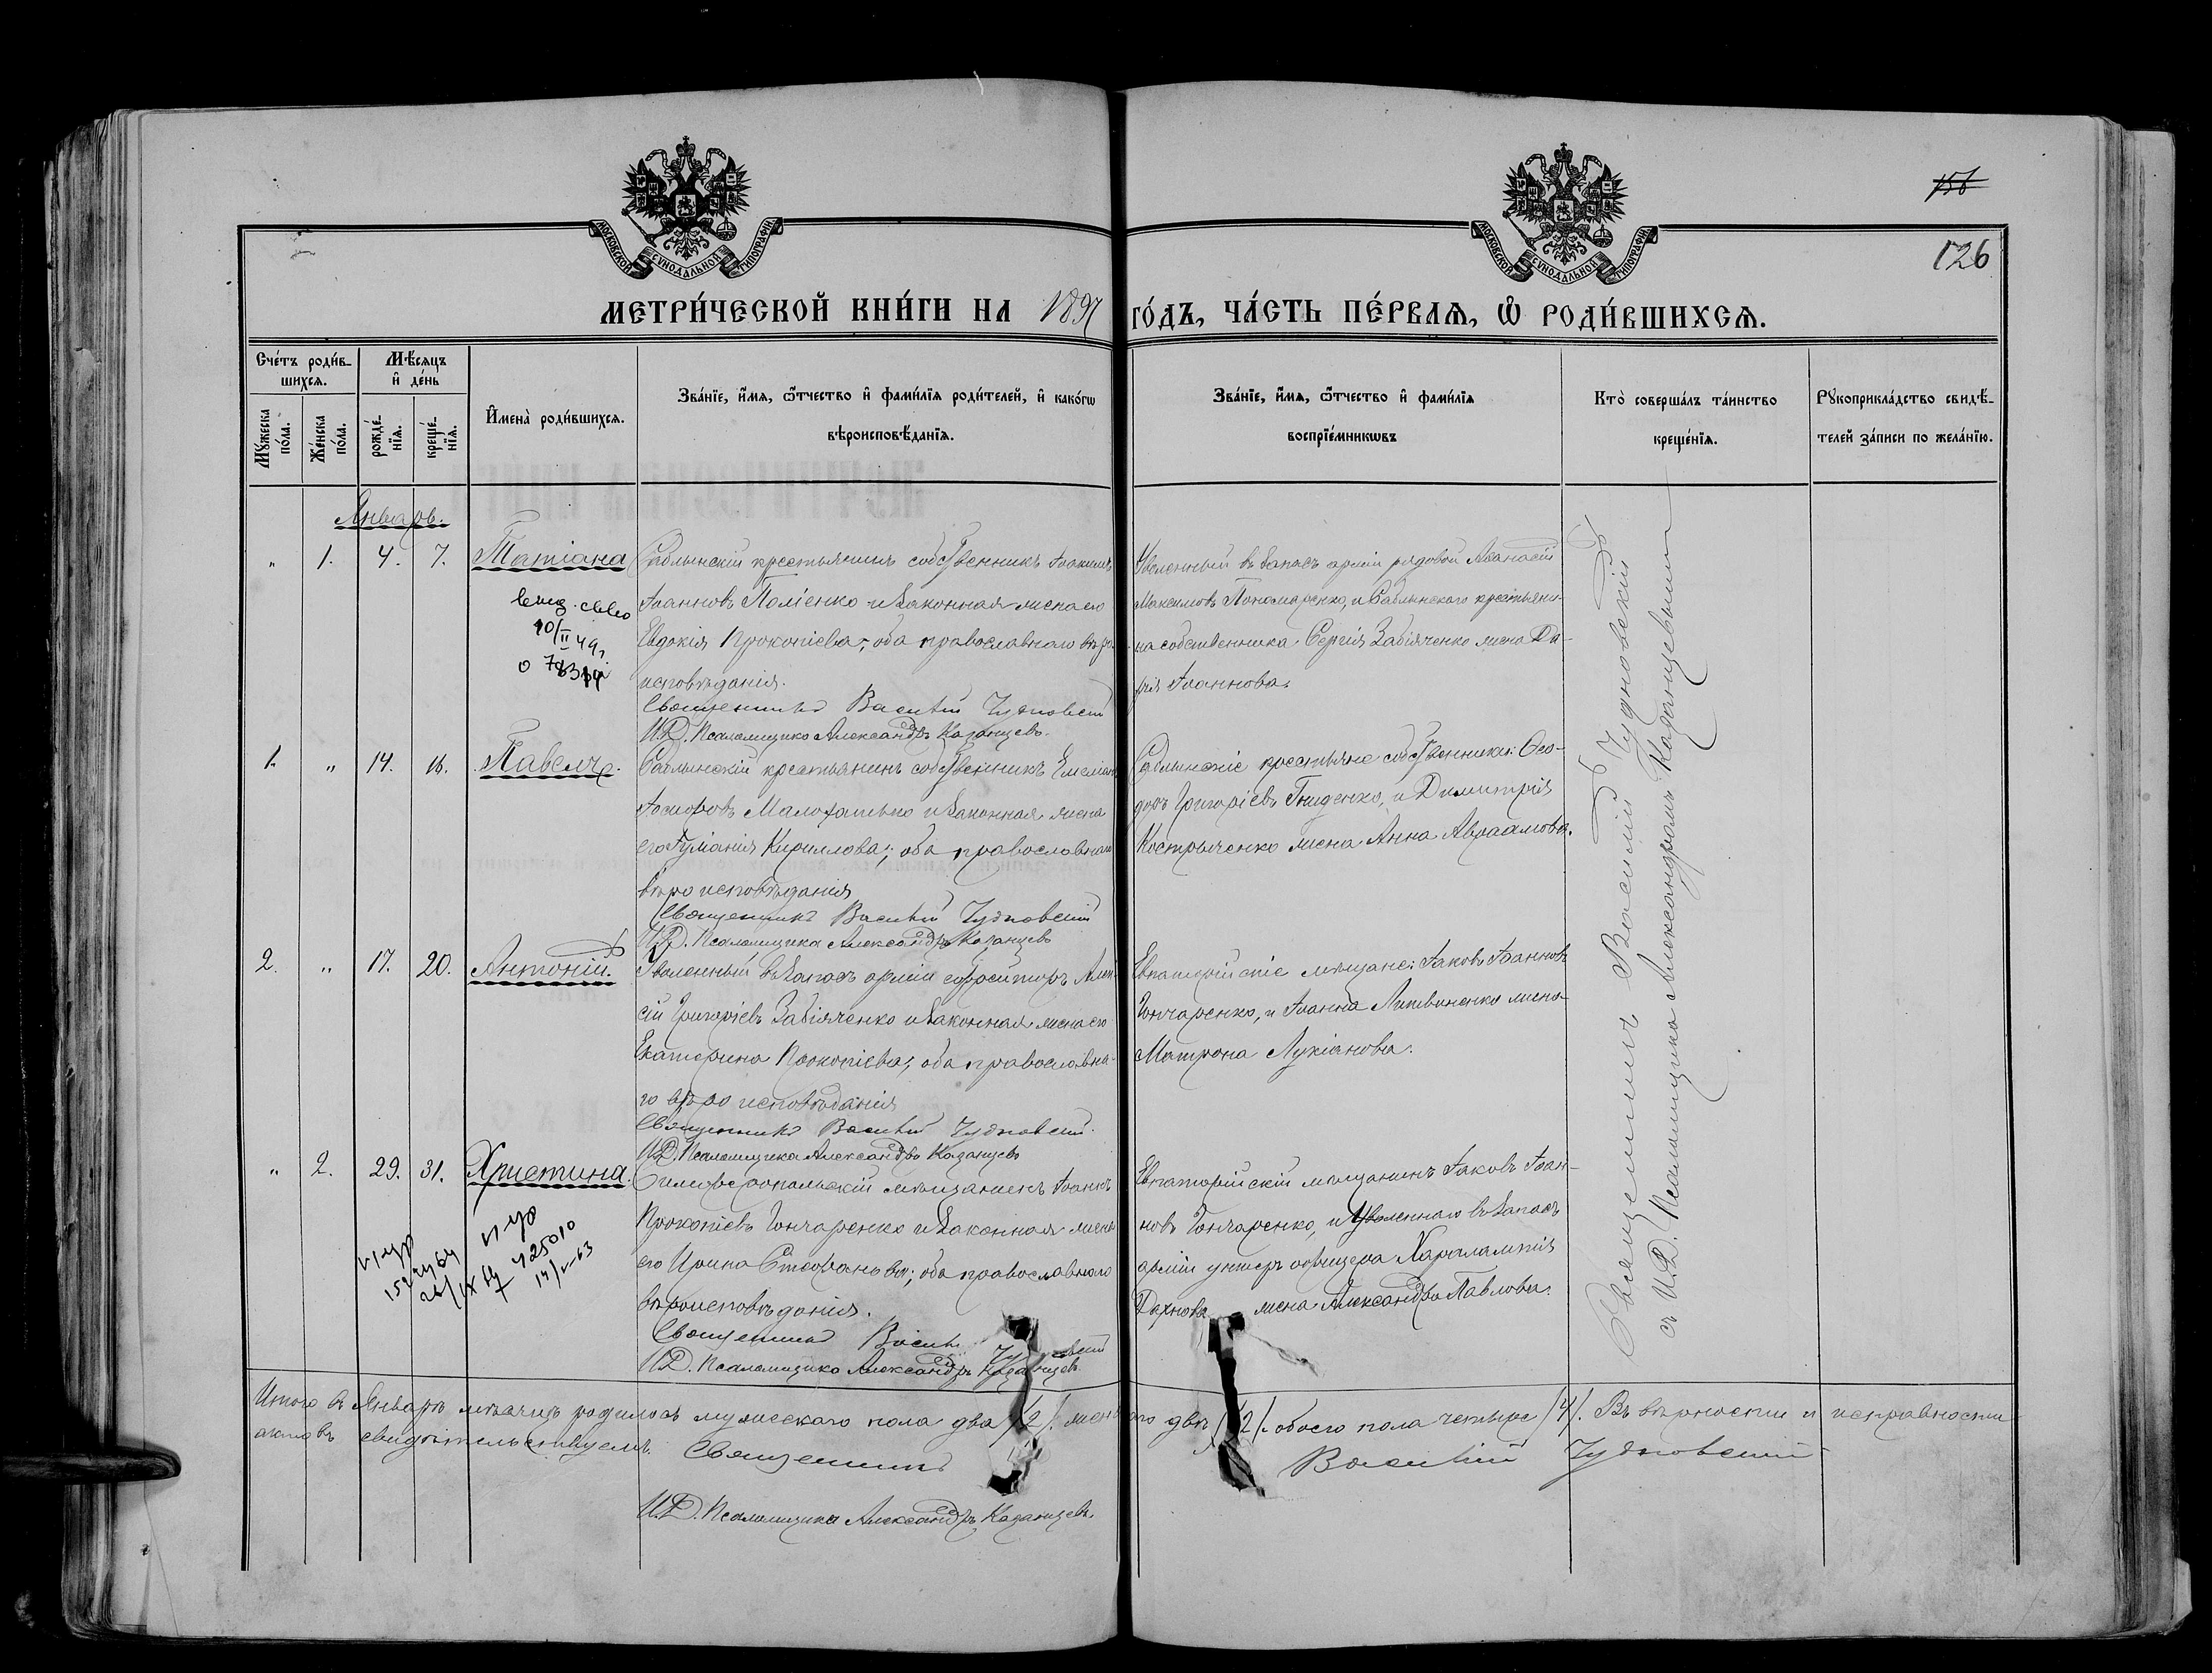 МОСКОВСКОЙ СѴНОДАЛЬНОЙ ТИПОГРАФІИ
МОСКОВСКОЙ СѴНОДАЛЬНОЙ ТИПОГРАФІИ
156
126
МЕТРИ́ЧЕСКОЙ КНИ́ГИ НА 1897 ГО́ДЪ, ЧА́СТЬ ПЕ́РВАѦ, Ѡ҆ РОДИ́ВШИХСѦ.
Сче́тъ роди́в-
шихсѧ.
Мꙋжеска
по́ла.
Же́нска
по́ла.
Мѣ́сѧцъ
и҆ де́нь
рожде́-
нїѧ.
креще́-
нїѧ.
И҆мена̀ роди́вшихсѧ.
Зва́нїе, и҆́мѧ, ѻ҆́тчество и҆ фами́лїѧ роди́телей, и҆ како́гѡ
вѣроисповѣ́данїѧ.
Зва́нїе, и҆́мѧ, ѻ҆́тчество и҆ фами́лїѧ
воспрїе́мникѡвъ
Кто̀ соверша́лъ та́инство
креще́нїѧ.
Рꙋкоприкла́дство свидѣ́-
телей за́писи по жела́нїю.
Январь.
" 1. 4. 7. Татіана
Саблынскій крестьянинъ собственникъ Іоакимъ
Іоанновъ Поліенко и законная жена его
Евдокія Прокопіева; оба православнаго вѣро-
исповѣданія.
Священникъ Василій Чудновскій
И.Д. Псаломщика Александръ Казанцевъ.
Уволенный въ запасъ арміи рядовой Аѳанасій
Максимовъ Пономаренко, и Саблынскаго крестьяни-
на собственника Сергія Забіяченко жена Да-
рія Іоаннова.
10/II 49
1. " 14. 16. Павелъ.
Саблынскій крестьянинъ собственникъ Емеліанъ
Іосифовъ Малохатько и законная жена
его Іуліанія Кириллова; оба православнаго
вѣроисповѣданія
Священникъ Василій Чудновскій
И.Д. Псаломщика Александръ Казанцевъ
Саблынскіе крестьяне собственники: Ѳео-
доръ Григоріевъ Гниденко, и Димитрія
Костырченко жена Анна Авраамова.
2. " 17. 20. Антоній.
Уволенный въ запасъ арміи ефрейторъ Алек-
сій Григоріевъ Забіяченко и законная жена его
Екатерина Прокопіева; оба православна-
го вѣроисповѣданія
Священникъ Василій Чудновскій.
И.Д. Псаломщика Александръ Казанцевъ
Евпаторійскіе мѣщане: Іаковъ Іоанновъ
Гончаренко, и Іоанна Литвиненко жена
Матрона Лукіанова.
" 2. 29. 31. Христина.
Симферопольскій мѣщанинъ Іоаннъ
Прокопіевъ Гончаренко и законная жена
его Ирина Стефанова; оба православнаго
вѣроисповѣданія.
Священникъ Василій Чудновскій
И.Д. Псаломщика Александръ Казанцевъ
Евпаторійскій мѣщанинъ Іаковъ Іоан-
новъ Гончаренко, и Уволеннаго въ запасъ
арміи унтеръ офицера Харалампія
Дахнова жена Александра Павлова.
Священникъ Василій Чудновскій
съ И.Д. Псаломщика Александромъ Казанцевымъ
Итого въ Январѣ мѣсяцѣ родилось мужескаго пола два /2/. женскаго двѣ /2/. обоего пола четыре /4/. Въ вѣрности и исправности
актовъ свидѣтельствуемъ: Священникъ Василій Чудновскій
И.Д. Псаломщика Александръ Казанцевъ.